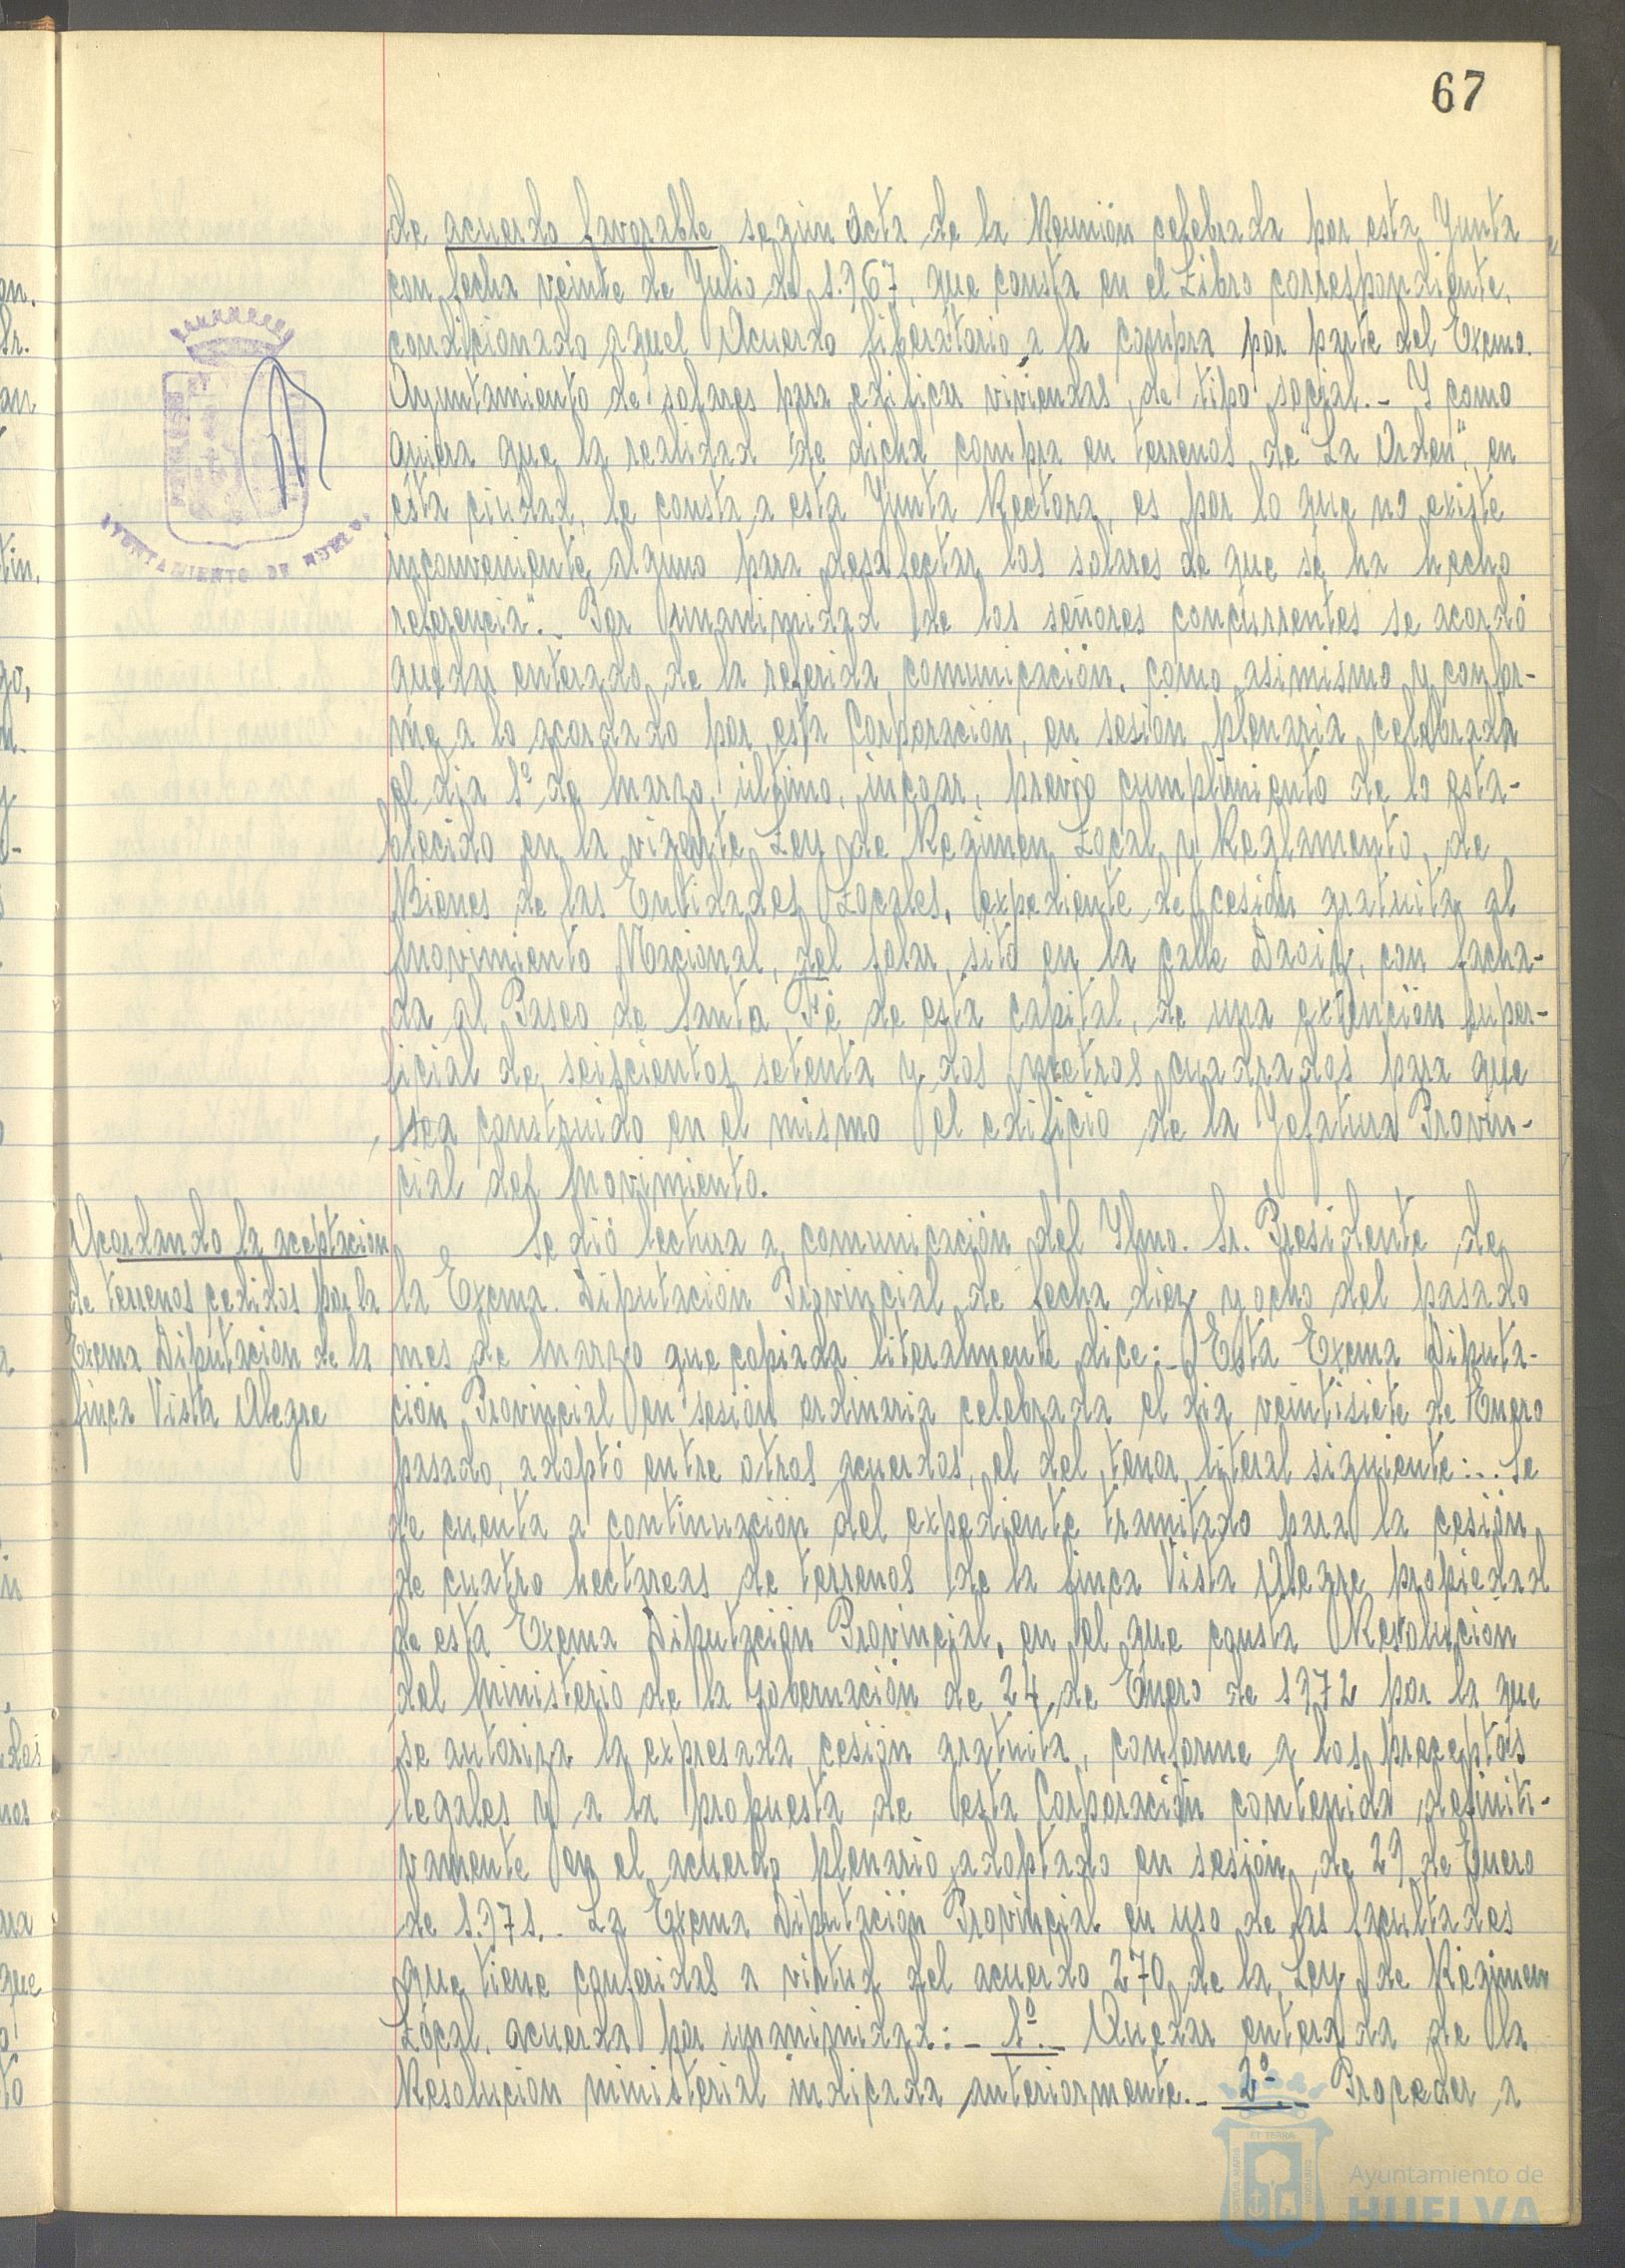 67
de acuerdo favorable según acta de la Reunión celebrada por esta Junta
con fecha veinte de Julio de 1.967, que consta en el Libro correspondiente,
condicionado aquel Acuerdo liberatorio a la compra por parte del Excmo.
Ayuntamiento de solares para edificar viviendas de tipo social.- Y como
quiera que la realidad de dicha compra en terrenos de "La Orden", en
esta ciudad, le consta a esta Junta Rectora, es por lo que no existe
inconveniente alguno para desafectar los solares de que se ha hecho
referencia".- Por unanimidad de los señores concurrentes se acordó
quedar enterado de la referida comunicación, como asimismo y confor-
me a lo acordado por esta Corporación, en sesión plenaria celebrada
el dia 1º de marzo, último, incoar, previo cumplimiento de lo esta-
blecido en la vigente Ley de Regimen Local y Reglamento de
Bienes de las Entidades Locales, expediente de cesión gratuita al
Movimiento Nacional, del solar sito en la calle Daoiz, con facha-
da al Paseo de Santa Fé de esta capital, de una extención super-
ficial de seiscientos setenta y dos metros cuadrados para que
sea construido en el mismo el edificio de la Jefatura Provin-
cial del Movimiento.
Acordando la aceptacion
de terrenos cedidos por la
Excma Diputacion de la
finca Vista Alegre
Se dió lectura a comunicación del Ilmo. Sr. Presidente de
la Excma. Diputación Provincial de fecha diez y ocho del pasado
mes de marzo que copiada literalmente dice:- Esta Excma Diputa-
ción Provincial en sesión ordinaria celebrada el dia veintisiete de Enero
pasado, adoptó entre otros acuerdos, el del tenor literal siguiente:.. Se
de cuenta a continuación del expediente tramitado para la cesión
de cuatro hectareas de terrenos de la finca Vista Alegre propiedad
de esta Excma Diputación Provincial, en el que consta Resolucion
del Ministerio de la Gobernación de 24 de Enero de 1972 por la que
se autoriza la expresada cesión gratuita, conforme a los preceptos
legales y a la propuesta de esta Corporación contenida definiti-
vamente en el acuerdo plenario adoptado en sesión de 29 de Enero
de 1.971.- La Excma Diputación Provincial en uso de las facultades
que tiene conferidas a virtud del acuerdo 270 de la Ley de Régimen
Local, acuerda por unanimidad:- 1º.- Quedar enterada de la
Resolucion ministerial indicada anteriormente.- 2º.- Proceder a
AYUNTAMIENTO DE HUELVA
Ayuntamiento de
HUELVA